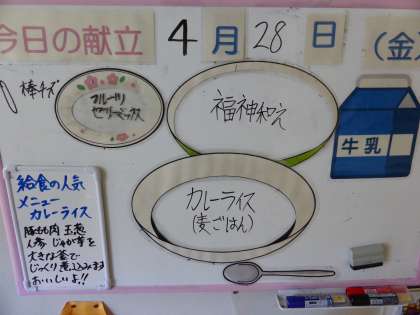 今日の献立 4月28日 (金)
棒チーズ
フルーツ
ゼリーミックス
福神和え
牛乳
カレーライス
(麦ごはん)
給食の人気
メニュー
カレーライス
豚もも肉 玉葱
人参 じゃが芋を
大きな釜で
じっくり煮込みます
おいしいよ!!